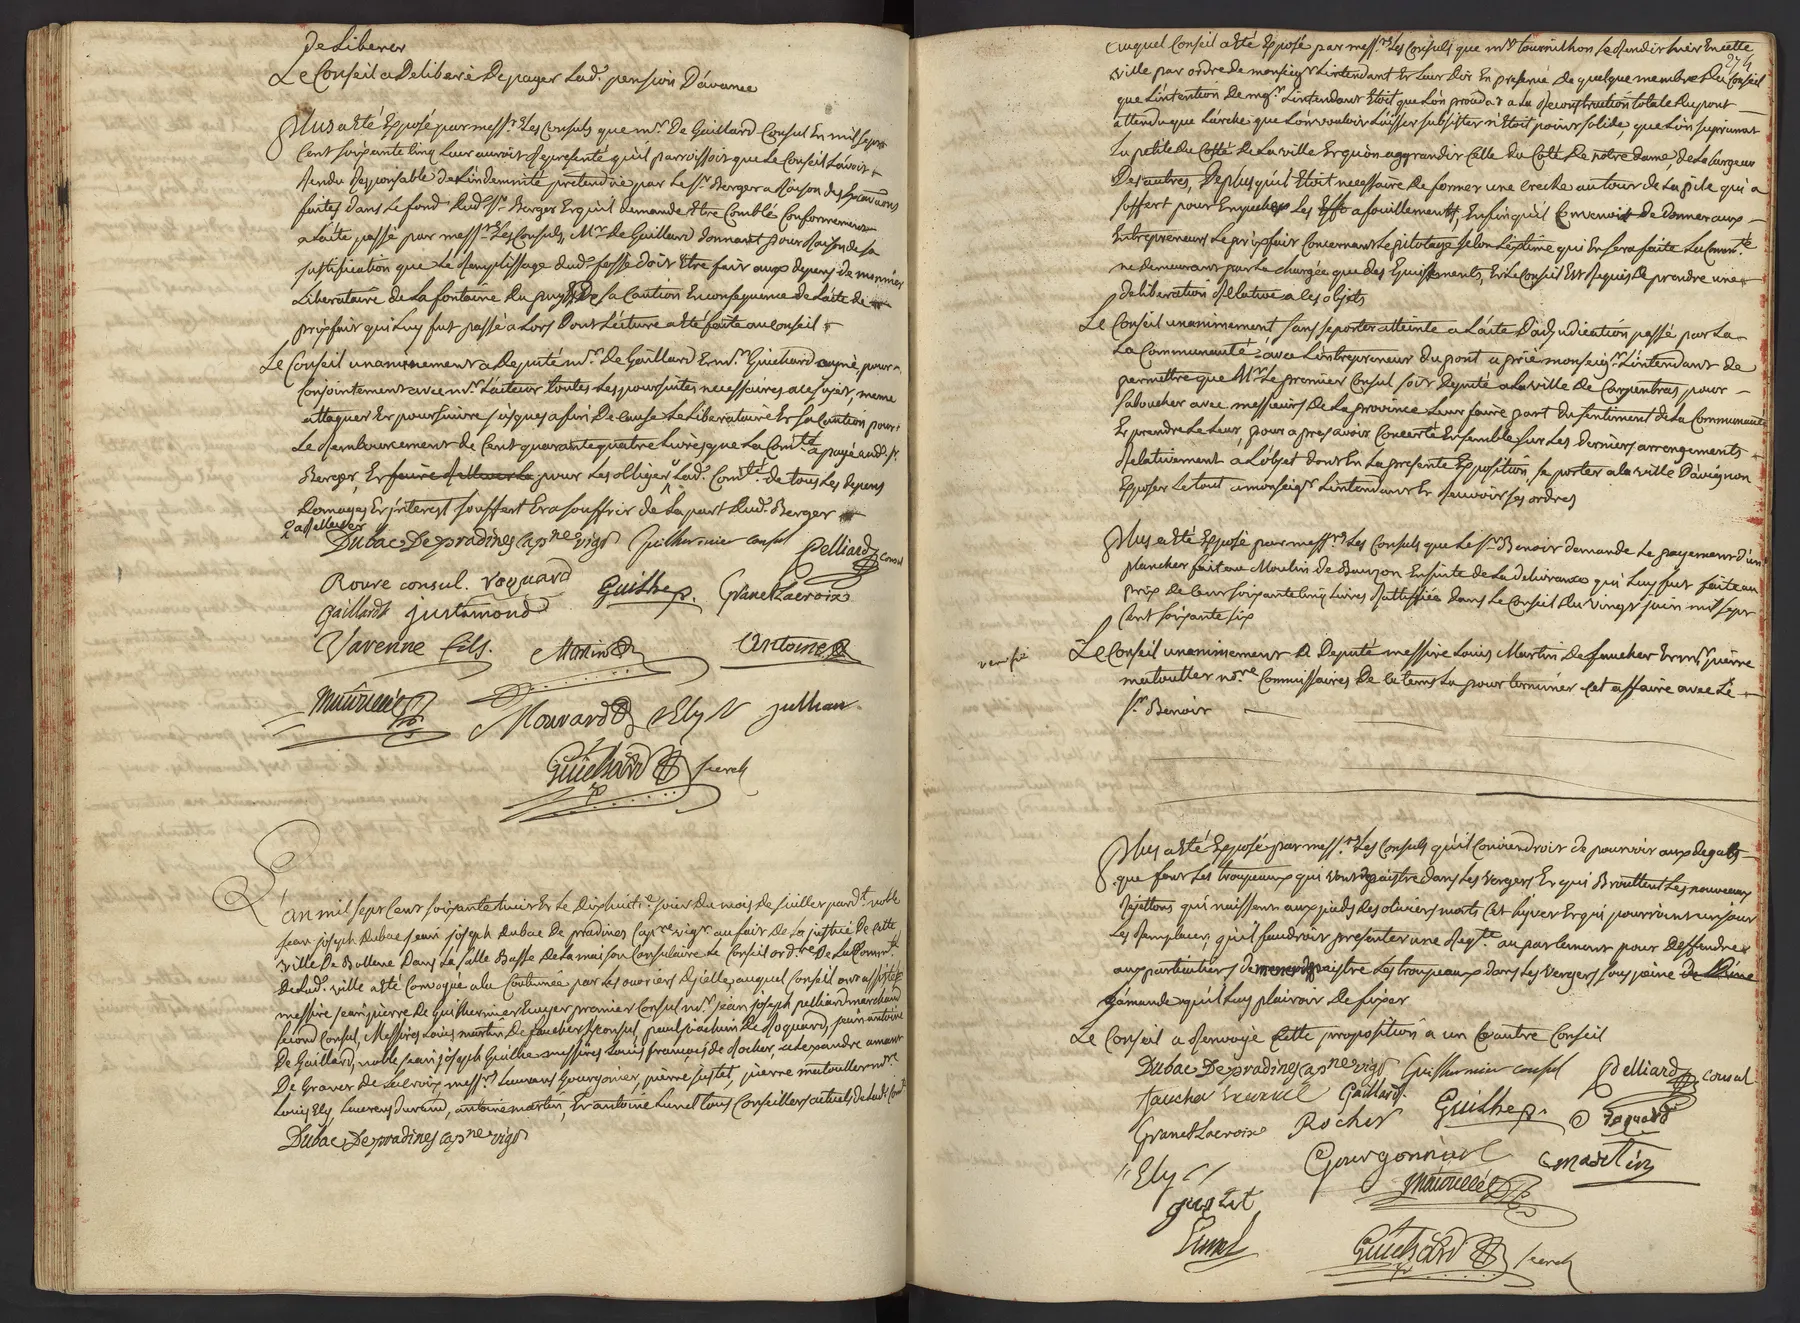 de Liberer
Le Conseil a Deliberé De payer Lad. pension D'avance
Plus a eté Exposé par mess.rs Les Consuls que m.r De Gaillard Consul En mil sept
Cent soixante cinq Leur auroit Representé qu'il paroissoit que Le Conseil L'avoit
Rendu Responsable de L'indemnité pretendue par Le s.r Berger a Raison des Excavaõns
faites dans Le fond dud. s.r Berger Et qu'il demande Etre Comblé Conformement
a L'acte passé par mess.rs Les Consuls, M.r De Guillard donnant pour Raison de sa
justification que Le Remplissage dud. fossé doit Etre fait aux depens de
Liberataire de La fontaine Du puy Et De sa Caution En consequence de L'acte de
prixfait qui Luy fut passé alors Dont Lecture a eté faite au Conseil
Le Conseil unanimement a Deputé m.r De Gaillard Et m.r Guichard pour
Conjointement avec m.r L'acteur toutes Les poursuites necessaires a ce sujet, meme
attaquer Et poursuivre jusques a fin De Cause Le Liberataire Et sa Caution pour
Le Remboursement de Cent quarante quatre Livres que La Com.té a payé aud. s.r
Berger, Et faire Relever La pour Les obliger Lad. Com.té de tous Les depens
Domages Et interest souffert Et a souffrir de La part Dud. Berger
a Relever
Dubac De pradines Cap.ne vigr Guilhermier consul Pelliard consul
Roure consul. roquard Guilhe p. Granet Lacroix
Gaillard Justamond
Varenne fils. Martin Antoine
Mouvard Ely Jullian
Guichard secret.
L'an mil sept Cent soixante huit Et Le Dixhuit.e jour Du mois de juillet pard.t noble
jean joseph Dubac jean joseph Dubac De pradines Cap.ne vig.r au fait de La justice De cette
ville De Bollene Dans La salle Basse De La maison Consulaire Le Conseil ord.re De La Com.té
De Lad. ville a eté Convoqué a La Coutumée par Les ouvriers D'icelle, auquel Conseil ont assisté
messire jean pierre De Guilhermier Ecuyer premier Consul m.r jean joseph pelliard marchand
second Consul, Messires Louis martin De faucher Exconsul, paul joachim De Roquard, jean antoine
De Gaillard, noble jean joseph Guilhe messires Louis francois de Rocher, alexandre amant
De Granet de Lacroix mess.rs Laurans Gourgonier, pierre justet, pierre matoullet no.re
Louis Ely, Laurens durand, antoine martin, Et antoine Lunel tous Conseillers actuels de Lad. Com.té
Dubac De pradines Cap.ne vigr
274
auquel Conseil a eté Exposé par mess.rs Les Consuls que m.r tournilhon se Rendit hier En cette
ville par ordre de monseig.r L'intendant Et Leur Dit En presence De quelque membre du Conseil
que L'intention De mg.r L'intendant Etoit que L'on procedat a La Reconstruction totale Du pont
attendu que L'arche que L'on vouloit Laisser subsister n'Etoit point solide, que L'on suprimat
La petite du Coté De La ville Et qu'on aggrandit Celle du Coté De notre dame, de La Largeur
Des autres, De plus qu'il Etoit necessaire De former une creche autour de La pile qui a
soffert pour Empecher Les affouillements, Enfin qu'il Convenoit de donner aux
Entrepreneurs Le prixfait Concernant Le pilotage selon L'estime qui En sera faite La Com.té
ne demeurant par La chargée que des Epuisements, Et Le Conseil Est Requis De prendre une
deliberation Relative a ces objets
Le Conseil unanimement sans porter atteinte a L'acte D'adjudication passé par La
La Communauté avec L'entrepreneur du pont a prié monseig.r L'intendant de
permettre que M.r Le premier Consul soit deputé a La ville De Carpentras pour
s'aboucher avec messieurs De La province Leur faire part du sentiment de La Communauté
Et prendre Le Leur, pour apres avoir Concerté Ensemble sur Les derniers arrengements
Relativement a L'objet dont En La presente Exposition, se porter a La ville D'avignon
Exposer Le tout a monseig.r L'intendant Et Recevoir ses ordres
Plus a eté Exposé par mess.rs Les Consuls que Le s.r Benoit demande Le payement d'un
plancher fait au Moulin de Bauzon En suite de La delivrance qui Luy fut faite au
prix de Cent soixante cinq Livres Rattifiée dans Le Conseil Du vingt juin mil sept
Cent soixante six
Le Conseil unanimement a Deputé messire Louis Martin De faucher Et m.r pierre
matoullet no.re Commissaires De ce tems La pour terminer cet affaire avec Le
s.r Benoit
Plus a eté Exposé par mess.rs Les Consuls qu'il Conviendroit de pourvoir aux degats
que font Les troupeaux qui vont paistre dans Les vergers Et qui Brouttent Les nouveaux
Rejettons qui naissent aux pieds des oliviers morts Cet hyver Et qui pourroient un jour
Les Remplacer, qu'il faudroit presenter une Req.te au parlement pour deffendre
aux particuliers de mener paistre Les troupeaux dans Les vergers sous peine de L'ame
L'amande qu'il Luy plairoit De fixer
Le Conseil a Renvoyé Cette proposition a un autre Conseil
Dubac De pradines Cap.ne vigr Guilhermier consul Pelliard consul
faucher Gaillard. Guilhe p. Roquard
Granet Lacroix Rocher
Ely Gourgonnier Martin
justet
Lunel Guichard secret.